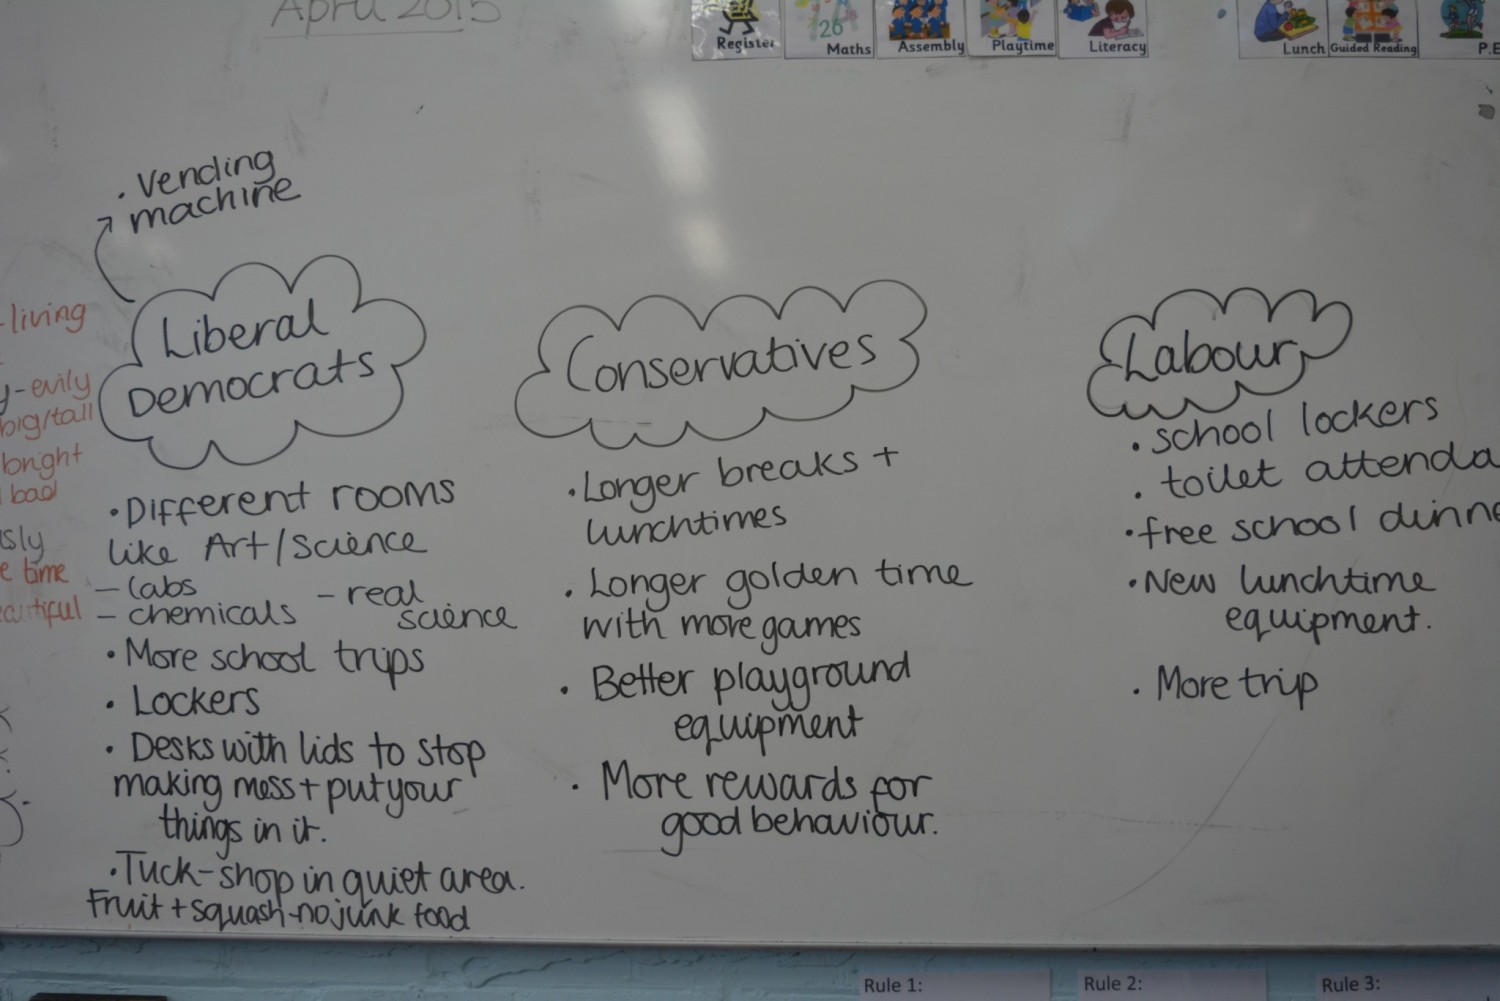 April 2015
Register
Maths
26
Assembly
Playtime
Literacy
Lunch
Guided Reading
P.E
• Vending
machine
Liberal
Democrats
• Different rooms
like Art/Science
– labs
– real
– chemicals
science
• More school trips
• Lockers
• Desks with lids to stop
making mess + put your
things in it.
• Tuck-shop in quiet area.
Fruit + squash - no junk food
Conservatives
• Longer breaks +
lunchtimes
• Longer golden time
with more games
• Better playground
equipment
• More rewards for
good behaviour.
Labour
• school lockers
• toilet attenda
• free school dinne
• New lunchtime
equipment.
• More trip
- living
y-evily
big/tall
bright
bad
sly
e time
eautiful
Rule 1:
Rule 2:
Rule 3: